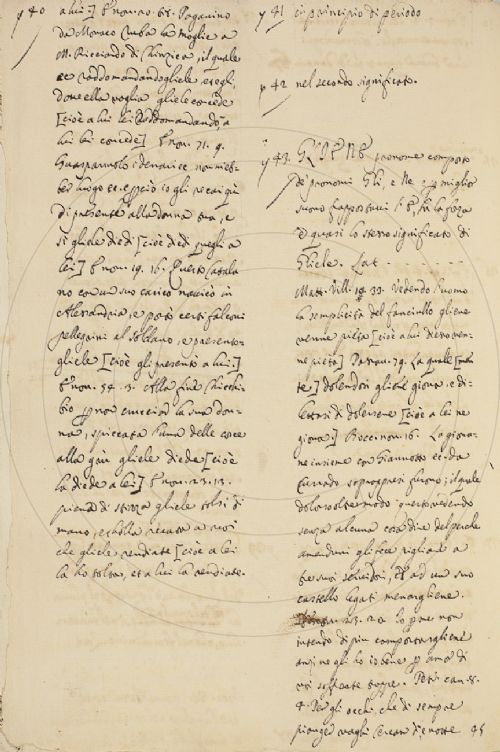 p 40 a lui.] E non. 20. 65. Paganino
da Monaco ruba la moglie a
M. Ricciardo di Chinzica, il quale
ec raddomandandogliele, e egli,
dove ella voglia gliele concede
[cioè a lui lei raddomandando, a
lui lei concede] E nov. 71. 9.
Guasparruolo
ber luogo ec. e perciò io gli recai qui
di presente alla donna tua, e
sì gliele diedi [cioè diedi quegli a
lei] E nov. 19. 16. Questo Catala
no con un suo carico navicò in
Alessandria, e portò certi falconi
pellegrini al Soldano, e presentò-
gliele [cioè gli presentò a lui.]
E nov. 54. 3. Alla fine Chichi-
bio per non crucciar la sua don-
na, spiccata l'una delle cosce
alla gru gliele diede [cioè
la diede a lei.] E nov. 23. 13.
piena di stizza gliele tolsi di
mano, e holla recata a voi
che gliele rendiate [cioè a lei
la ho tolta, et a lui la rendiate.
p 41 in principio di periodo
p 42 nel secondo significato.
p 43. GLIENE pronome composto
de' pronomi Gli, e Ne e per miglior
suono frapportavi l'E, ha la forza
e quasi lo stesso significato di
Gliele. Lat. - - - - - - -
Matt. Vill. 33. Vedendo l'uomo
la semplicità del fanciullo gliene
venne pietà [cioè a lui di ciò ven-
ne pietà] Passav. 79. La quale [
te] dolendosi gliene giova, e di-
lettasi di dolersene [cioè a lei ne
giova.] Bocc. nov. 16. La giova-
ne insieme con Giannotto ec. da
Currado soprappresi furono; il quale
doloroso oltre modo questo vedendo
senza alcuna cosa dire del perchè
amenduni gli fece pigliare a
tre suoi servidori, e ad un suo
castello legati menargliene.
23. 20. Io per me non
intendo di più comportargliene
anzi ne gli ho io bene per amor di
voi sofferte troppe. Petr. can. 8.
4. Per gli occhi, che di sempre
pianger vaghi cercan dì e notte 45